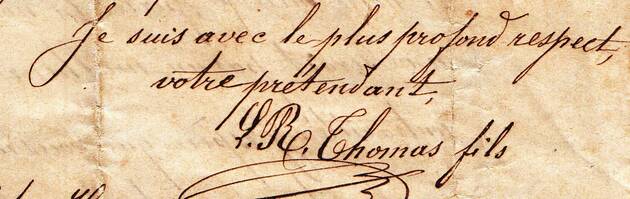 Je suis avec le plus profond respect,
votre prétendant,
L. R. Thomas fils